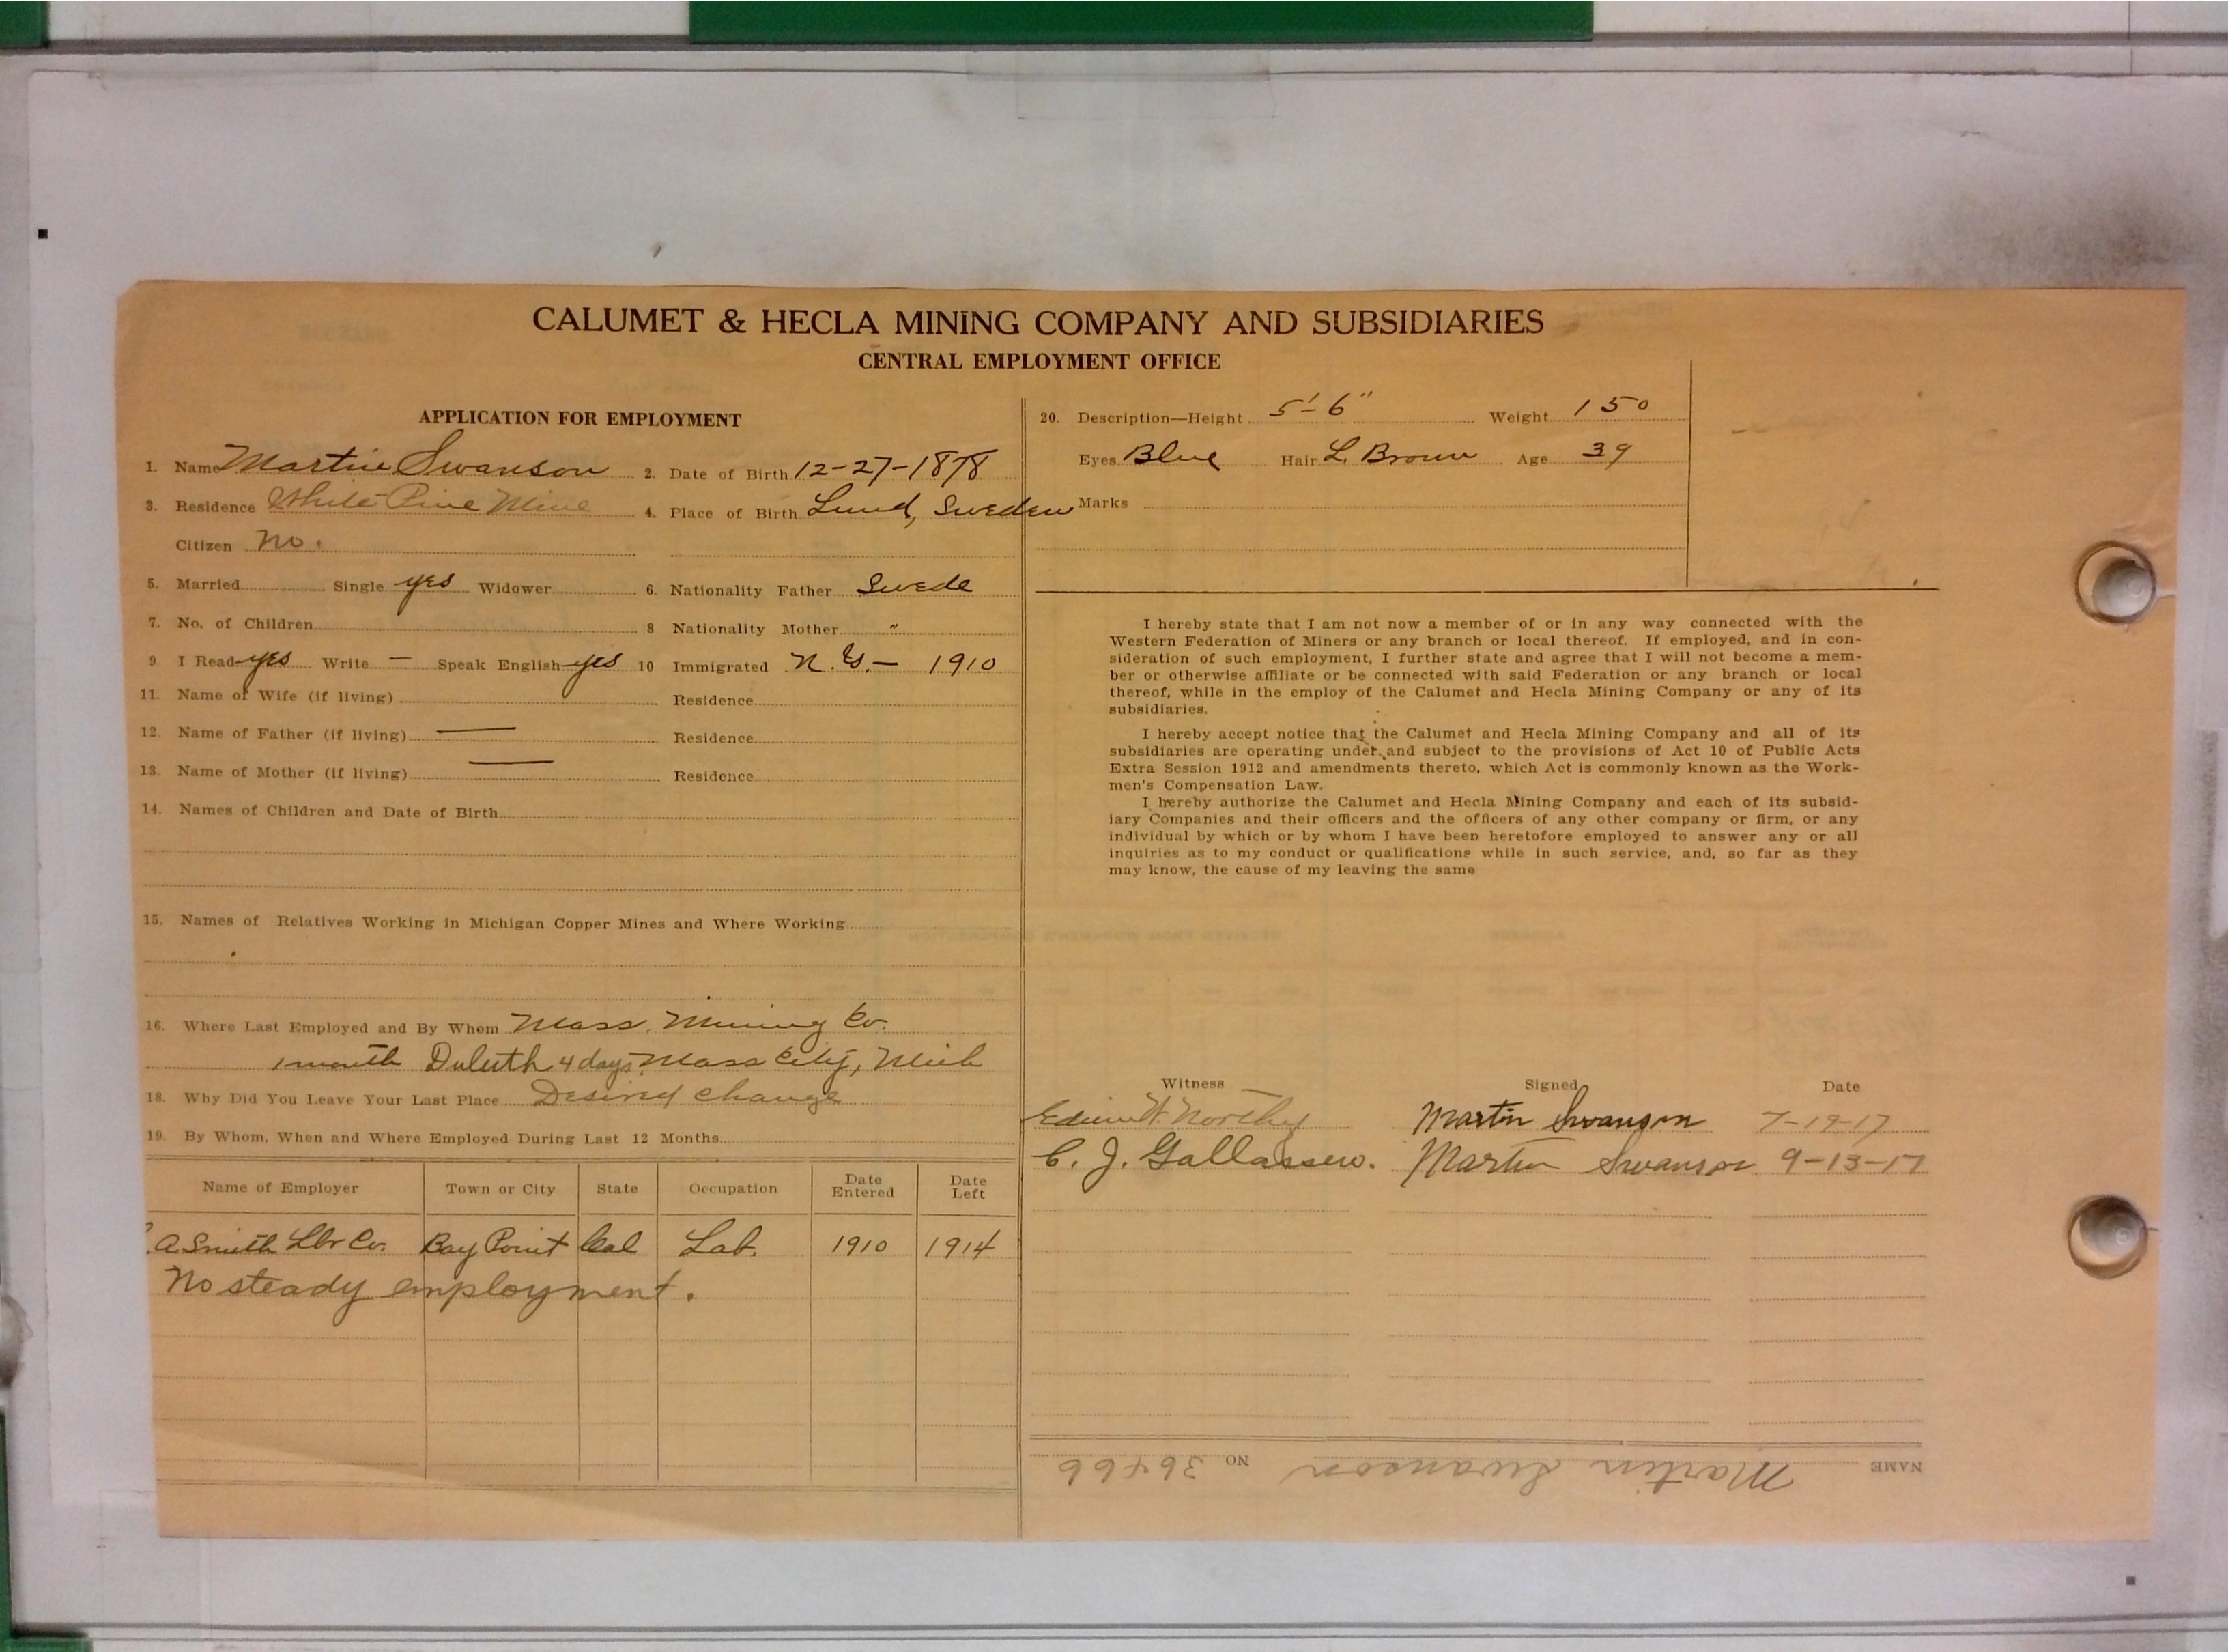 CALUMET & HECLA MINING COMPANY AND SUBSIDIARIES
CENTRAL EMPLOYMENT OFFICE
APPLICATION FOR EMPLOYMENT
1. Name Martin Swanson 2. Date of Birth 12-27-1878
3. Residence White Pine Mine 4. Place of Birth Lund, Sweden
Citizen no.
5. Married Single yes Widower 6. Nationality Father Swede
7. No. of Children 8 Nationality Mother "
9. I Read yes Write — Speak English yes 10 Immigrated N.Y. — 1910
11. Name of Wife (if living) Residence
12. Name of Father (if living) — Residence
13. Name of Mother (if living) — Residence
14. Names of Children and Date of Birth
15. Names of Relatives Working in Michigan Copper Mines and Where Working
16. Where Last Employed and By Whom Mass. Mining Co.
1 month Duluth 4 days. Mass City, Mich
18. Why Did You Leave Your Last Place Desired change
19. By Whom, When and Where Employed During Last 12 Months
Name of Employer Town or City State Occupation Date Entered Date Left
A. Smith Lbr Co. Bay Point Cal Lab. 1910 1914
No steady employment.
20. Description—Height 5'-6" Weight 150
Eyes Blue Hair L. Brown Age 39
Marks
I hereby state that I am not now a member of or in any way connected with the
Western Federation of Miners or any branch or local thereof. If employed, and in con-
sideration of such employment, I further state and agree that I will not become a mem-
ber or otherwise affiliate or be connected with said Federation or any branch or local
thereof, while in the employ of the Calumet and Hecla Mining Company or any of its
subsidiaries.
I hereby accept notice that the Calumet and Hecla Mining Company and all of its
subsidiaries are operating under and subject to the provisions of Act 10 of Public Acts
Extra Session 1912 and amendments thereto, which Act is commonly known as the Work-
men's Compensation Law.
I hereby authorize the Calumet and Hecla Mining Company and each of its subsid-
iary Companies and their officers and the officers of any other company or firm, or any
individual by which or by whom I have been heretofore employed to answer any or all
inquiries as to my conduct or qualifications while in such service, and, so far as they
may know, the cause of my leaving the same
Witness Signed Date
Edwin W. Northey Martin Swanson 7-19-17
C. J. Gallassero. Martin Swanson 9-13-17
NAME Martin Swanson NO. 36466